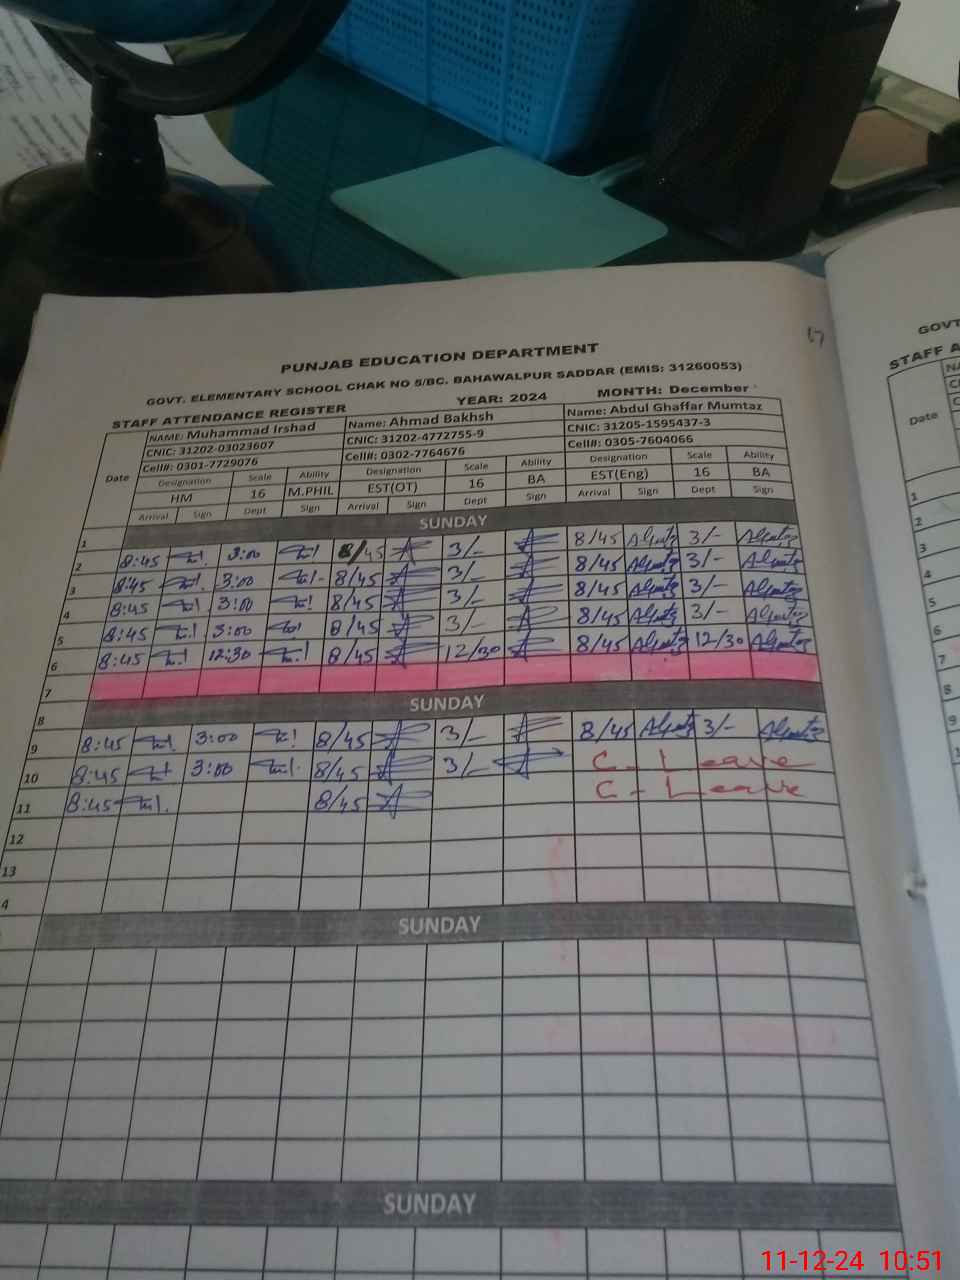 17
PUNJAB EDUCATION DEPARTMENT
GOVT. ELEMENTARY SCHOOL CHAK NO 5/BC. BAHAWALPUR SADDAR (EMIS: 31260053)
STAFF ATTENDANCE REGISTER YEAR: 2024 MONTH: December
Date NAME: Muhammad Irshad Name: Ahmad Bakhsh Name: Abdul Ghaffar Mumtaz
CNIC: 31202-03023607 CNIC: 31202-4772755-9 CNIC: 31205-1595437-3
Cell#: 0301-7729076 Cell#: 0302-7764676 Cell#: 0305-7604066
Designation Scale Ability Designation Scale Ability Designation Scale Ability
HM 16 M.PHIL EST(OT) 16 BA EST(Eng) 16 BA
Arrival Sign Dept Sign Arrival Sign Dept Sign Arrival Sign Dept Sign
1 SUNDAY
2 8:45 3:00 8/45 3/- 8/45 3/-
3 8:45 3:00 8/45 3/- 8/45 3/-
4 8:45 3:00 8/45 3/- 8/45 3/-
5 8:45 3:00 8/45 3/- 8/45 3/-
6 8:45 12:30 8/45 12/30 8/45 12/30
7
8 SUNDAY
9 8:45 3:00 8/45 3/- 8/45 3/-
10 8:45 3:00 8/45 3/- C - Leave
11 8:45 8/45 C - Leave
12
13
4
SUNDAY
SUNDAY
GOVT
STAFF A
Date
1
2
3
4
5
6
7
8
9
11-12-24 10:51